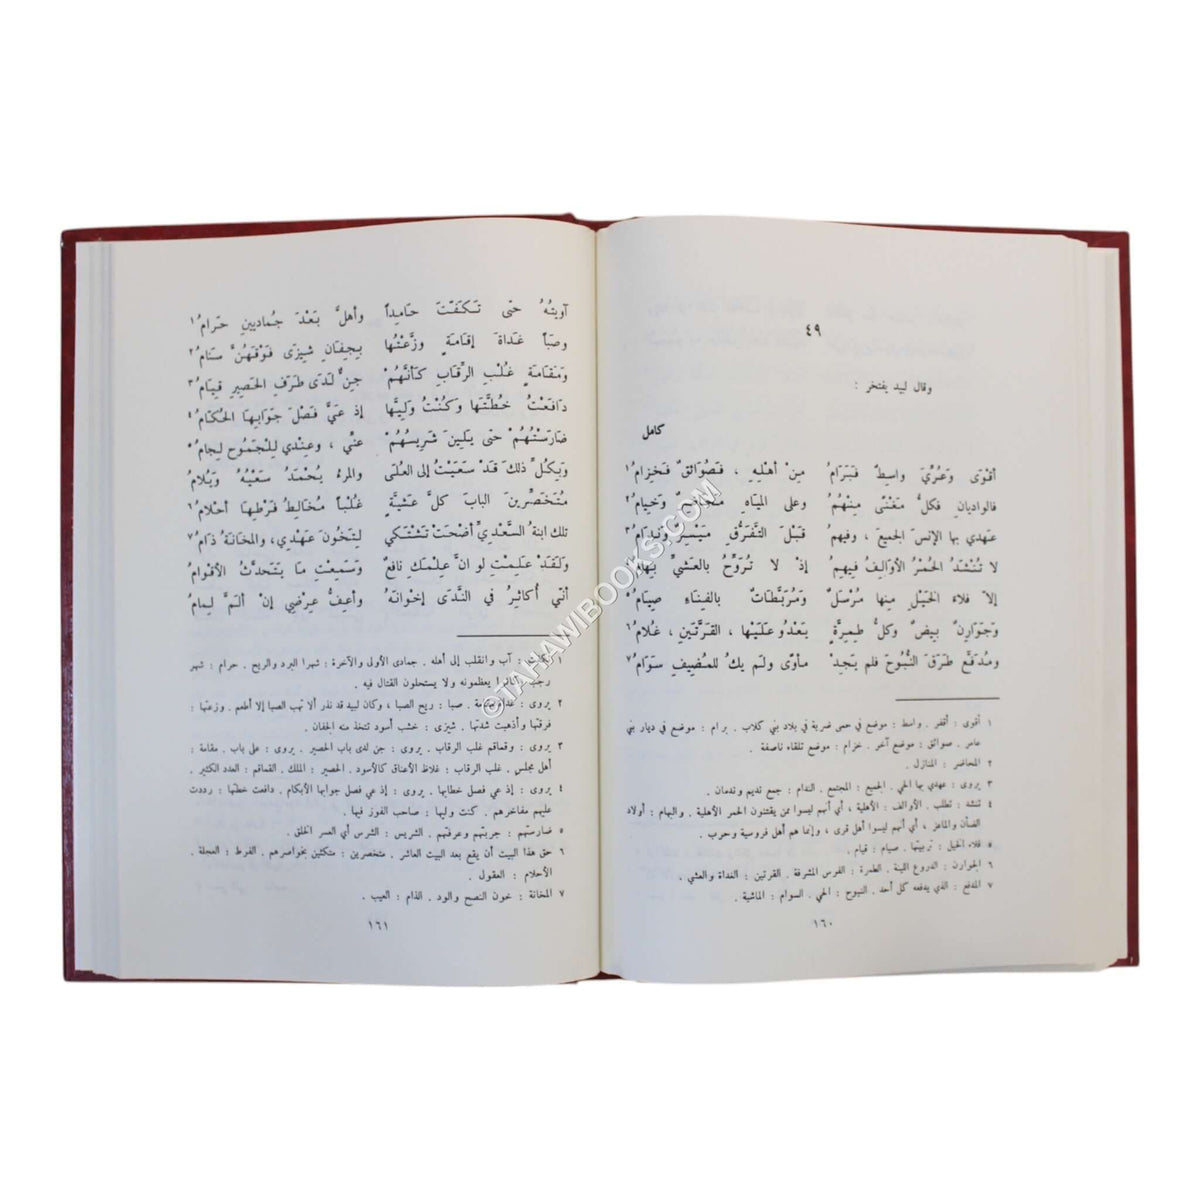 ٤٩
وقال لبيد يفتخر :
كامل
أقْوَى وَعُرِّيَ واسِطٌ فَبَرَامُ مِنْ أهْلِهِ ، فَصُوَائِقٌ فَخِزَامُ ١
فالواديانِ فكلُّ مَغْنًى مِنْهُمُ وعلى المياهِ مَحَاضِرٌ وَخِيامُ ٢
عَهْدي بها الإنسَ الجميعَ ، وفيهمُ قَبْلَ التَّفَرُّقِ مَيْسِرٌ وَنِدَامُ ٣
لا تُنْشَدُ الحُمْرُ الأوَالِفُ فيهِمُ إذْ لا تُرَوَّحُ بالعَشيِّ بِهَامُ ٤
إلاّ فلاءَ الخَيْلِ مِنها مُرْسَلٌ وَمُرَبَّطَاتٌ بالفِناءِ صِيامُ ٥
وَجَوَارِنٌ بِيضٌ وكلُّ طِمِرَّةٍ يَعْدُو عَلَيْها ، القَرَّتَينِ ، غُلامُ ٦
ومُدَفَّعٍ طَرَقَ النُّبُوحَ فلم يَجِدْ مأوًى ولم يكُ للمُضِيفِ سَوَامُ ٧
١ أقوى : أقفر . واسط : موضع في حمى ضرية في بلاد بني كلاب . برام : موضع في ديار بني
عامر . صوائق : موضع آخر . خزام : موضع تلقاء ناصفة .
٢ المحاضر : المنازل .
٣ يروى : عهدي بها الحي . الجميع : المجتمع . الندام : جمع نديم وندمان .
٤ تنشد : تطلب . الأوالف : الأهلية ، أي أنهم ليسوا ممن يقتنون الحمر الأهلية . والبهام : أولاد
الضأن والماعز ، أي أنهم ليسوا أهل قرى ، وإنما هم أهل فروسية وحرب .
٥ فلاء الخيل : تربيتها . صيام : قيام .
٦ الجوارن : الدروع اللينة . الطمرة : الفرس المشرفة . القرتين : الغداة والعشي .
٧ المدفع : الذي يدفعه كل أحد . النبوح : الحي . السوام : الماشية .
١٦٠
آويتُهُ حتى تَكَفَّتَ حامِداً وأهلَّ بَعْدَ جُماديينِ حَرامُ ١
وصَباً غَداةَ إقامَةٍ وزَّعْتُها بِجِفانِ شِيزَى فَوْقَهُنَّ سَنامُ ٢
وَمَقامَةٍ غُلْبِ الرِّقابِ كأنَّهُمْ جِنٌّ لَدَى طَرَفِ الحَصيرِ قيامُ ٣
دافَعْتُ خُطَّتَها وكُنْتُ وَلِيَّها إذ عَيَّ فَصْلَ جَوابِها الحُكّامُ ٤
ضارَسْتُهُمْ حتى يَلينَ شَريسُهُمْ عنّي ، وعِندي لِلْجَمُوحِ لِجامُ ٥
وبِكُلِّ ذلكَ قَدْ سَعَيْتُ إلى العُلَى والمرءُ يُحْمَدُ سَعْيُهُ وَيُلامُ
مُتَخَصِّرينَ البابَ كلَّ عَشيّةٍ غُلْباً مُخالِطُ فَرْطِها أحْلامُ ٦
تلك ابنةُ السَّعْدِيِّ أضْحَتْ تَشْتَكي لِتَخُونَ عَهْدي ، والمخانَةُ ذامُ ٧
ولَقَدْ عَلِمْتِ لو انَّ عِلْمَكِ نافعٌ وَسَمِعْتِ ما يَتَحَدَّثُ الأقْوامُ
أنّي أُكاثِرُ في النَّدَى إخْوانَهُ وأعِفُّ عِرْضي إنْ ألَمَّ لِمامُ
١ تكفت : آب وانقلب إلى أهله . جمادى الأولى والآخرة : شهرا البرد والريح . حرام : شهر
رجب ، كانوا يعظمونه ولا يستحلون القتال فيه .
٢ يروى : غداة . صبا : ريح الصبا ، وكان لبيد قد نذر ألا تهب الصبا إلا أطعم . وزعتها :
فرقتها وأذهبت شدتها . شيزى : خشب أسود تتخذ منه الجفان .
٣ يروى : وقماقم غلب الرقاب . يروى : جن لدى باب الحصير . يروى : على باب . مقامة :
أهل مجلس . غلب الرقاب : غلاظ الأعناق كالأسود . الحصير : الملك . القماقم : العدد الكثير .
٤ يروى : إذ عي فصل خطابها . يروى : إذ عي فصل جوابها الأبكام . دافعت خطتها : رددت
عليهم مفاخرهم . كنت وليها : صاحب الفوز فيها .
٥ ضارستهم : جربتهم وعرفتهم . الشريس : الشرس أي العسر الخلق .
٦ حق هذا البيت أن يقع بعد البيت العاشر . متخصرين : متكئين بخواصرهم . الفرط : العجلة .
الأحلام : العقول .
٧ المخانة : خون النصح والود . الذام : العيب .
١٦١
©TAHAWIBOOKS.COM